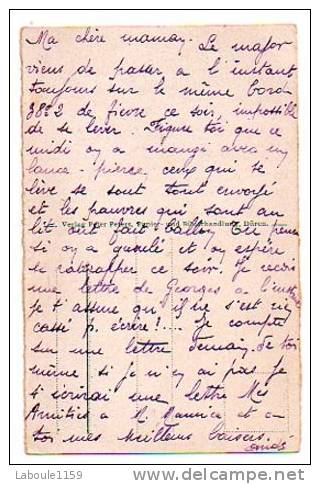 Ma chère maman. Le major
viens de passer a l'instant
toujours sur le même bord
38°2 de fievre ce soir, impossible
de se lever. Figure toi que ce
midi on a mangé avec un
lance-pierre, ceux qui se
lève se sont tout envoyé
et les pauvres qui sont au
lit ont fait ballon. Tu penses
Verlag Peter Papier- Düren.
si on a gueulé et on espère
se rattraper ce soir. Je reçois
une lettre de Georges a l'instant
je t'assure qu'il ne s'est
cassé p. écrire!... Je compte
sur une lettre demain de toi
même si je n'en ai pas je
t'écrirai une lettre Mes
Amitiés a M. Maurice et a
toi mes meilleurs baisers.
© Laboule1159
www.delcampe.net